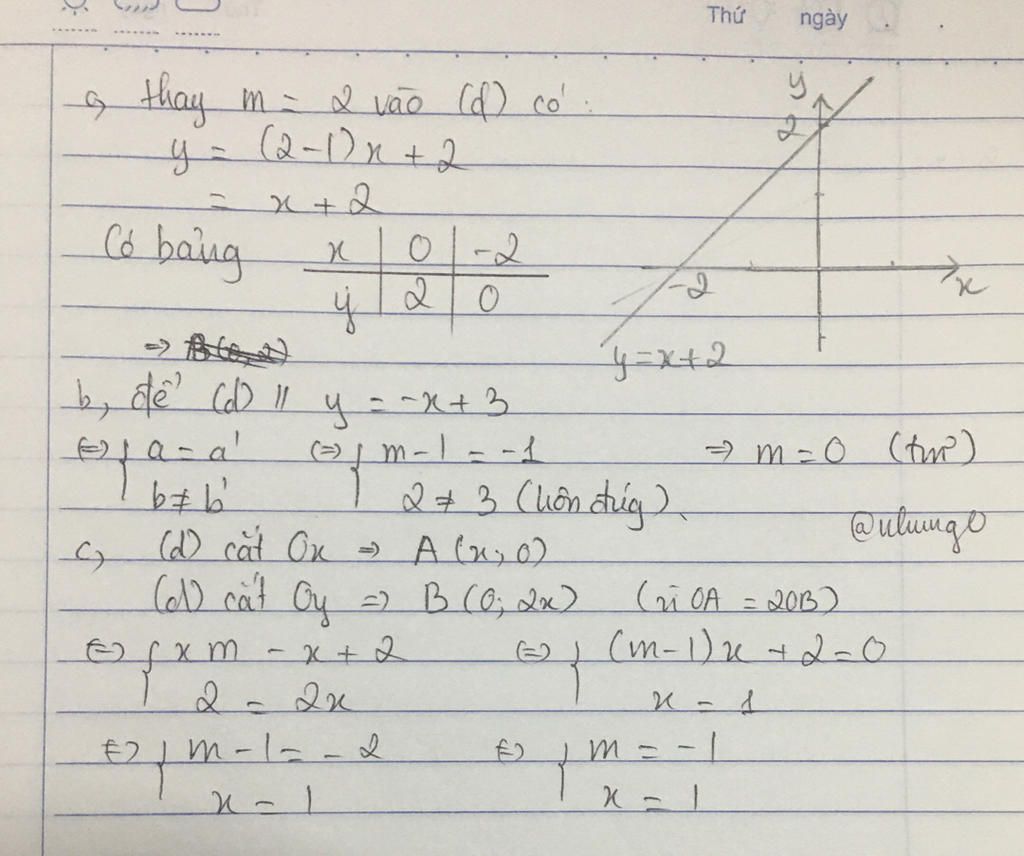 Thứ ngày
a, thay m = 2 vào (d) có:
y = (2-1)x + 2
= x + 2
Có bảng
x | 0 | -2
y | 2 | 0
y
2
-2
x
y = x+2
=>
b, để (d) // y = -x + 3
<=> { a = a' <=> { m-1 = -1 => m = 0 (tm)
b ≠ b' 2 ≠ 3 (luôn đúng)
@nhung
c, (d) cắt Ox => A(x; 0)
(d) cắt Oy => B(0; 2x) (vì OA = 2OB)
<=> { xm - x + 2 <=> { (m-1)x + 2 = 0
2 = 2x x = 1
<=> { m - 1 = -2 <=> { m = -1
x = 1 x = 1